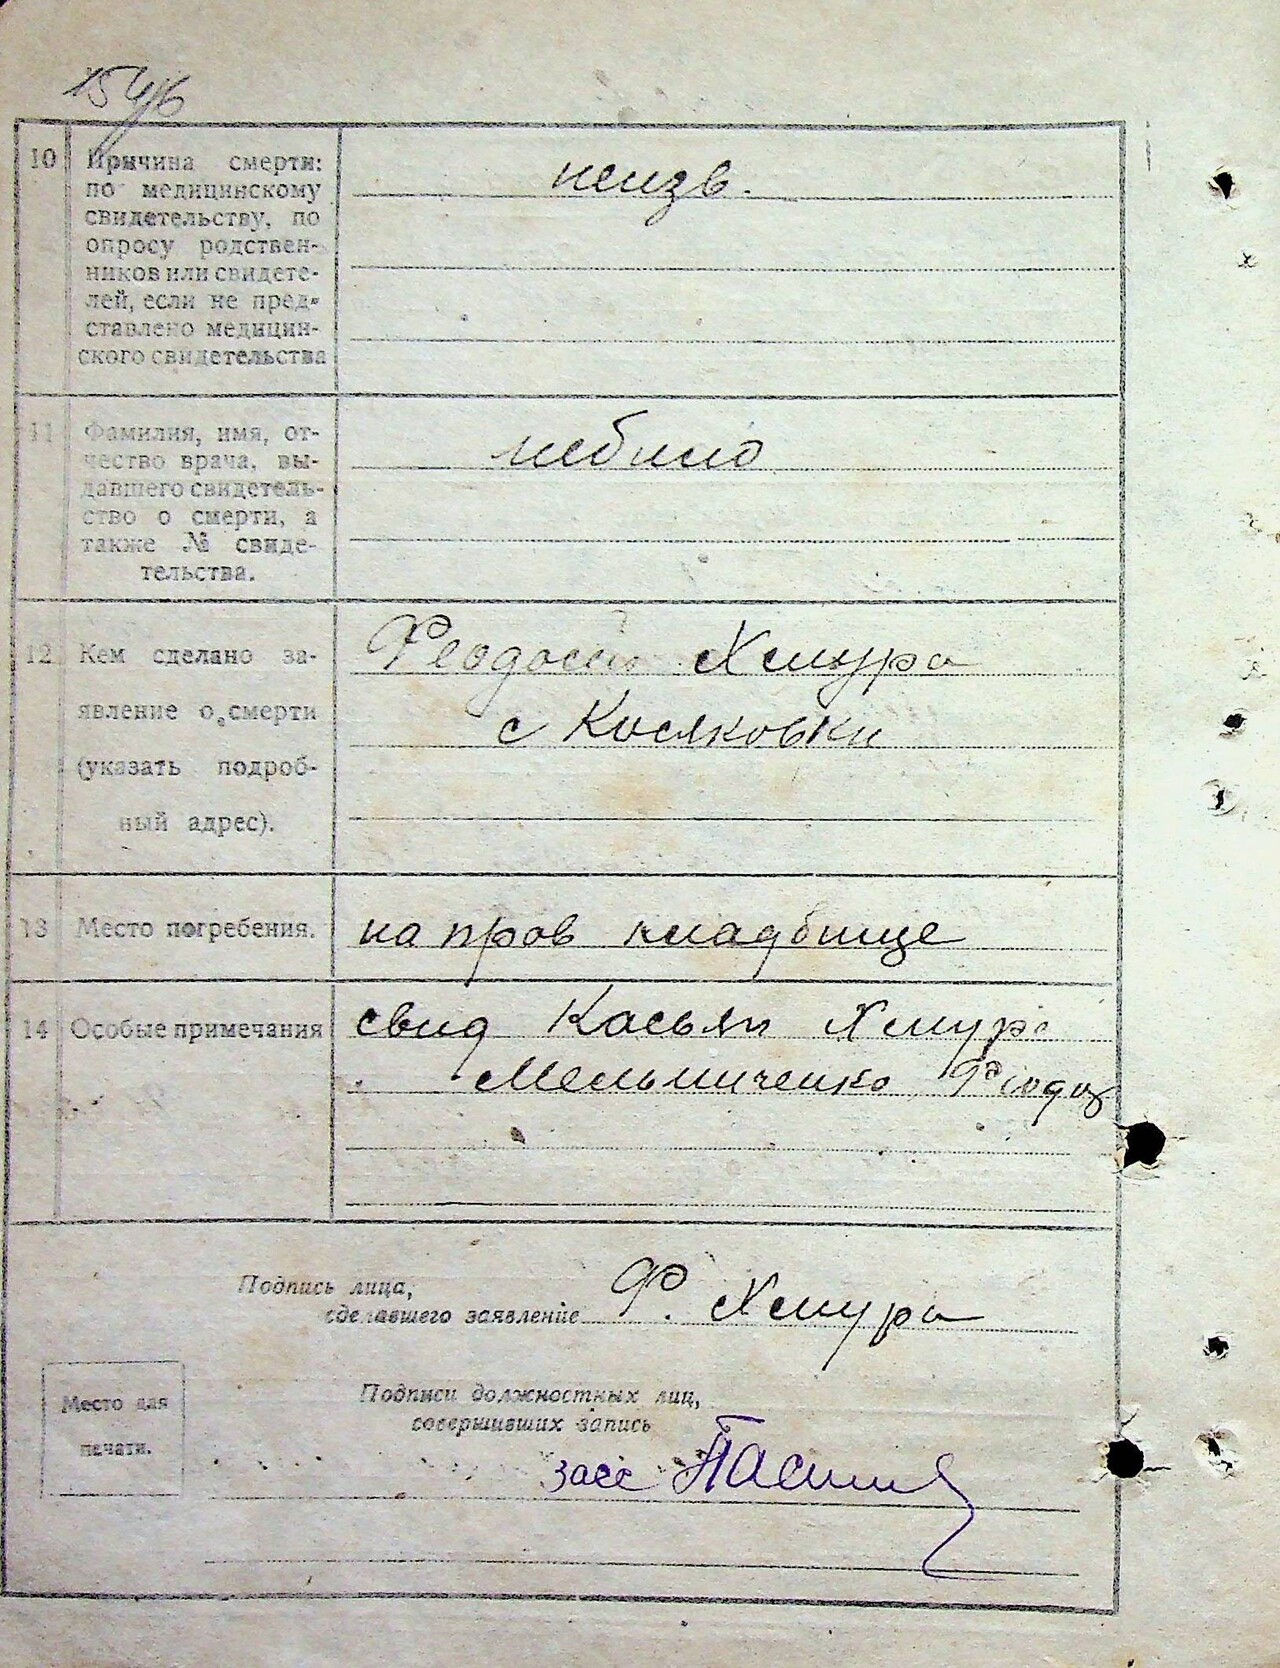 10 Причина смерти: неизв.
по медицинскому
свидетельству, по
опросу родствен-
ников или свидете-
лей, если не пред-
ставлено медицин-
ского свидетельства
11 Фамилия, имя, от- небило
чество врача, вы-
давшего свидетель-
ство о смерти, а
также № свиде-
тельства.
12 Кем сделано за- Феодосий Хмура
явление о смерти с Косяковки
(указать подроб-
ный адрес).
13 Место погребения. на пров кладбище
14 Особые примечания свид Касьян Хмура
Мельниченко Феодоз
Подпись лица,
сделавшего заявление Ф. Хмура
Место для
печати.
Подписи должностных лиц,
совершивших запись